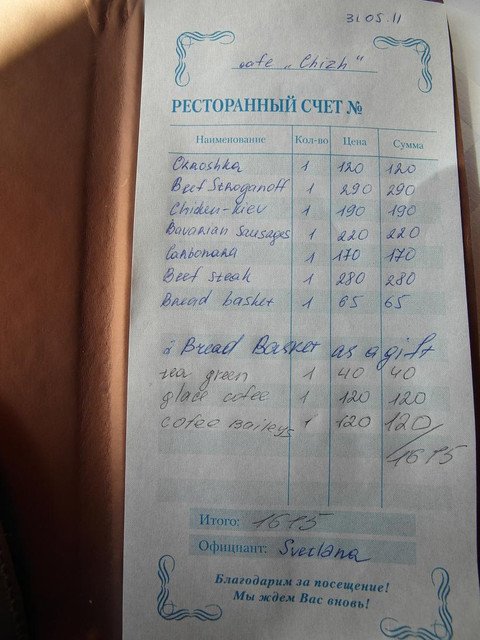 31.05.11
cafe „Chizh"
РЕСТОРАННЫЙ СЧЕТ №
Наименование Кол-во Цена Сумма
Okroshka 1 120 120
Beef Stroganoff 1 290 290
Chiken-kiev 1 190 190
Bavarian Sausages 1 220 220
Carbonara 1 170 170
Beef steak 1 280 280
Bread basket 1 65 65
Bread Basket as a gift
tea green 1 40 40
glace cofee 1 120 120
cofee Baileys 1 120 120
1615
Итого: 1615
Официант: Svetlana
Благодарим за посещение!
Мы ждем Вас вновь!